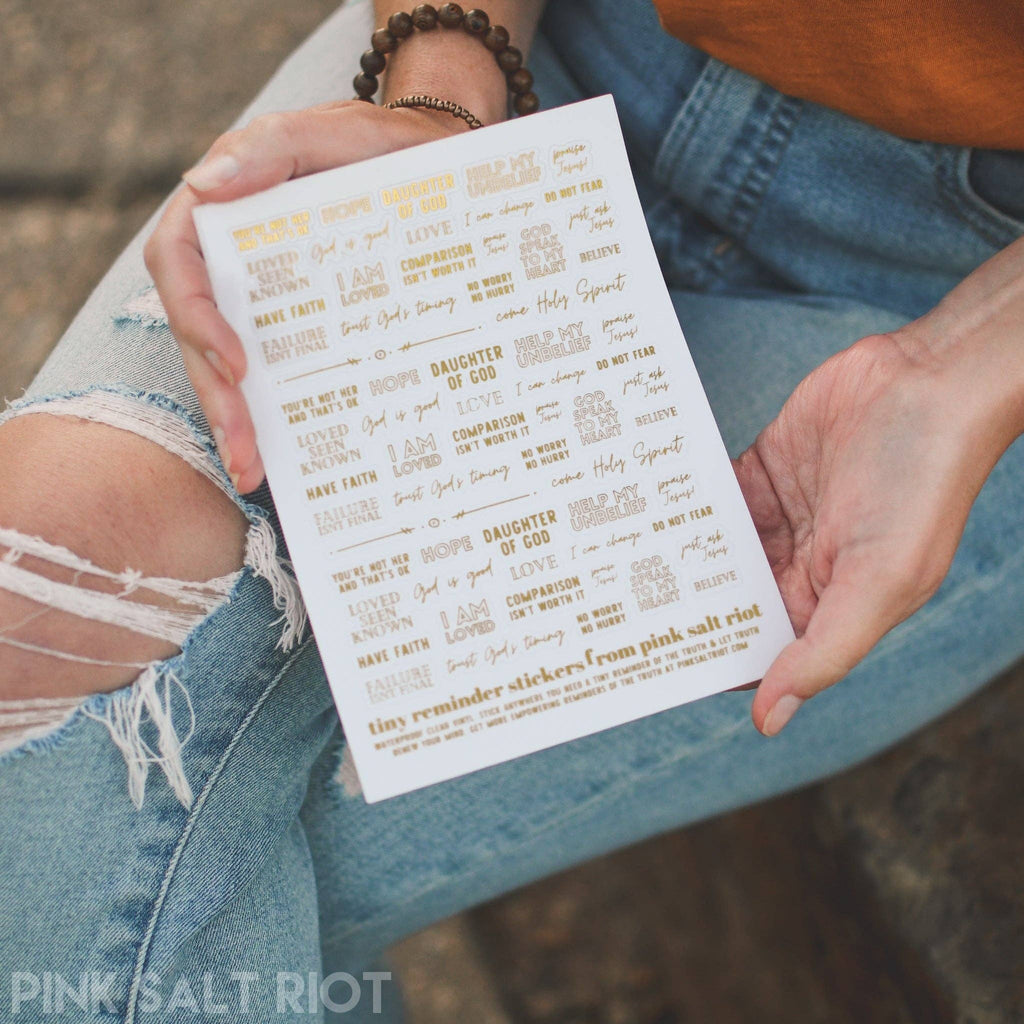 YOU'RE NOT HER
AND THAT'S OK
HOPE
DAUGHTER
OF GOD
HELP MY
UNBELIEF
praise
Jesus!
LOVED
SEEN
KNOWN
God is good
LOVE
I can change
DO NOT FEAR
I AM
LOVED
COMPARISON
ISN'T WORTH IT
praise
Jesus!
GOD
SPEAK
TO MY
HEART
just ask
Jesus
BELIEVE
HAVE FAITH
trust God's timing
NO WORRY
NO HURRY
FAILURE
ISN'T FINAL
come Holy Spirit
YOU'RE NOT HER
AND THAT'S OK
HOPE
DAUGHTER
OF GOD
HELP MY
UNBELIEF
praise
Jesus!
LOVED
SEEN
KNOWN
God is good
LOVE
I can change
DO NOT FEAR
I AM
LOVED
COMPARISON
ISN'T WORTH IT
praise
Jesus!
GOD
SPEAK
TO MY
HEART
just ask
Jesus
BELIEVE
HAVE FAITH
trust God's timing
NO WORRY
NO HURRY
FAILURE
ISN'T FINAL
come Holy Spirit
YOU'RE NOT HER
AND THAT'S OK
HOPE
DAUGHTER
OF GOD
HELP MY
UNBELIEF
praise
Jesus!
LOVED
SEEN
KNOWN
God is good
LOVE
I can change
DO NOT FEAR
I AM
LOVED
COMPARISON
ISN'T WORTH IT
praise
Jesus!
GOD
SPEAK
TO MY
HEART
just ask
Jesus
BELIEVE
HAVE FAITH
trust God's timing
NO WORRY
NO HURRY
FAILURE
ISN'T FINAL
tiny reminder stickers from pink salt riot
WATERPROOF CLEAR VINYL STICK ANYWHERE YOU NEED A TINY REMINDER OF THE TRUTH & LET TRUTH
RENEW YOUR MIND. GET MORE EMPOWERING REMINDERS OF THE TRUTH AT PINKSALTRIOT.COM
PINK SALT RIOT